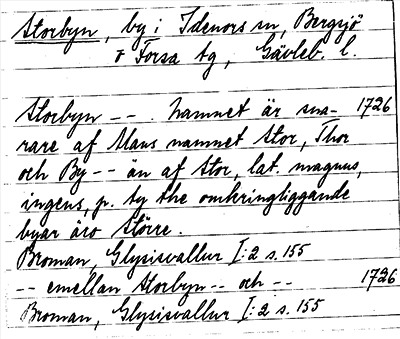 Storbyn, by i Idenors sn, Bergsjö
o Forsa tg, Gävleb. l.
Storbyn -- . namnet är sna- 1726
rare af Mans namnet Stor, Thor
och By -- än af Stor, lat. magnus,
ingens, p. ty the omkringliggande
byar äro större.
Broman, Glysisvallur I:2 s. 155
-- emellan Storbyn -- och -- 1726
Broman, Glysisvallur I:2 s. 155